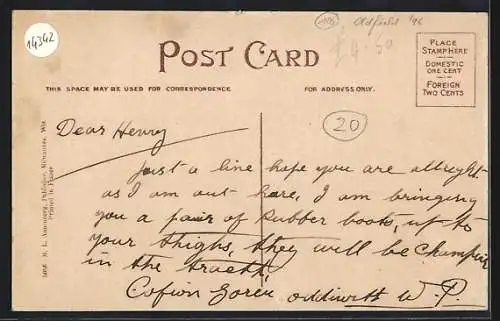 14342
105
Oldfield '96
£4.50
POST CARD
PLACE
STAMP HERE
DOMESTIC
ONE CENT
FOREIGN
TWO CENTS
THIS SPACE MAY BE USED FOR CORRESPONDENCE
FOR ADDRESS ONLY.
20
Dear Henry
Just a line hope you are allright
as I am out here, I am bringing
you a pair of rubber boots, up to
your thighs, they will be champion
in the
Cofion Goreu oddiwrth W. P.
Publisher, Milwaukee, Wis.
Printed in